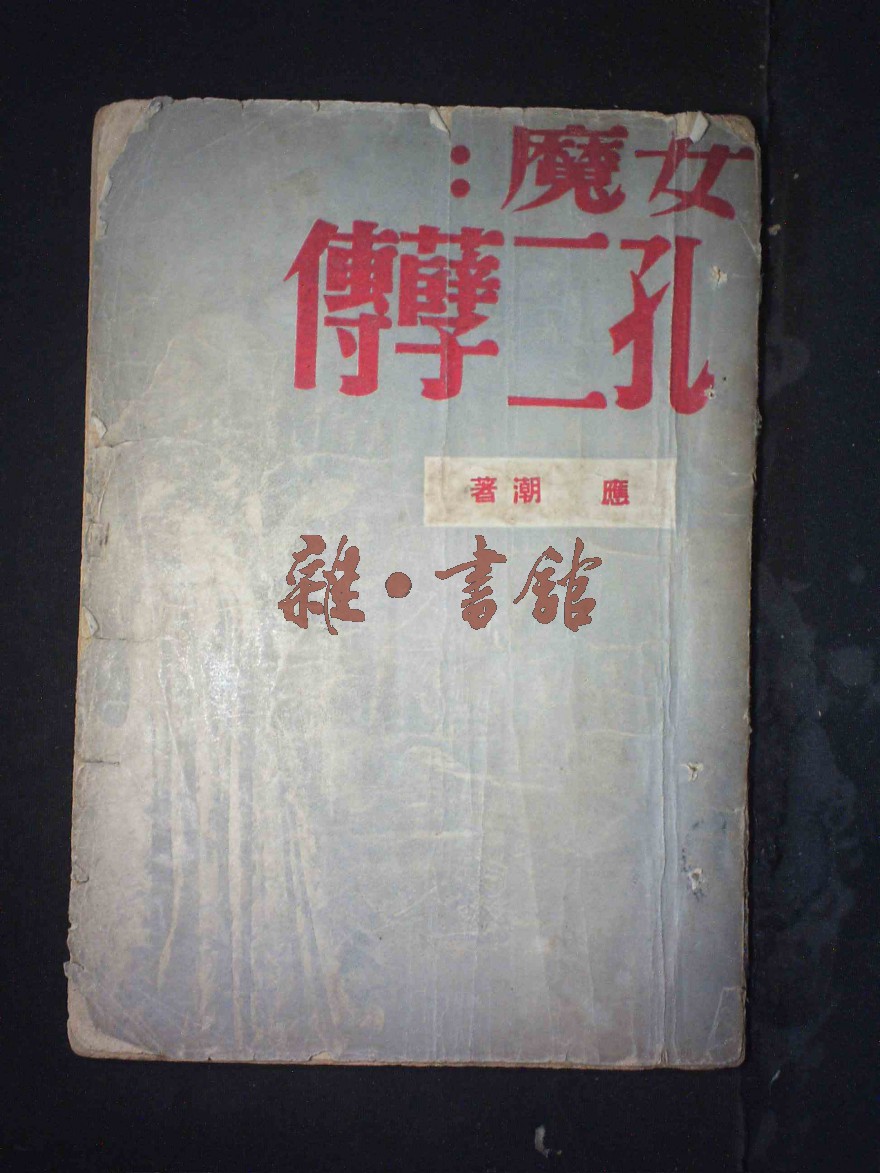 女魔：
孔二孽傳
應潮著
雜·書館